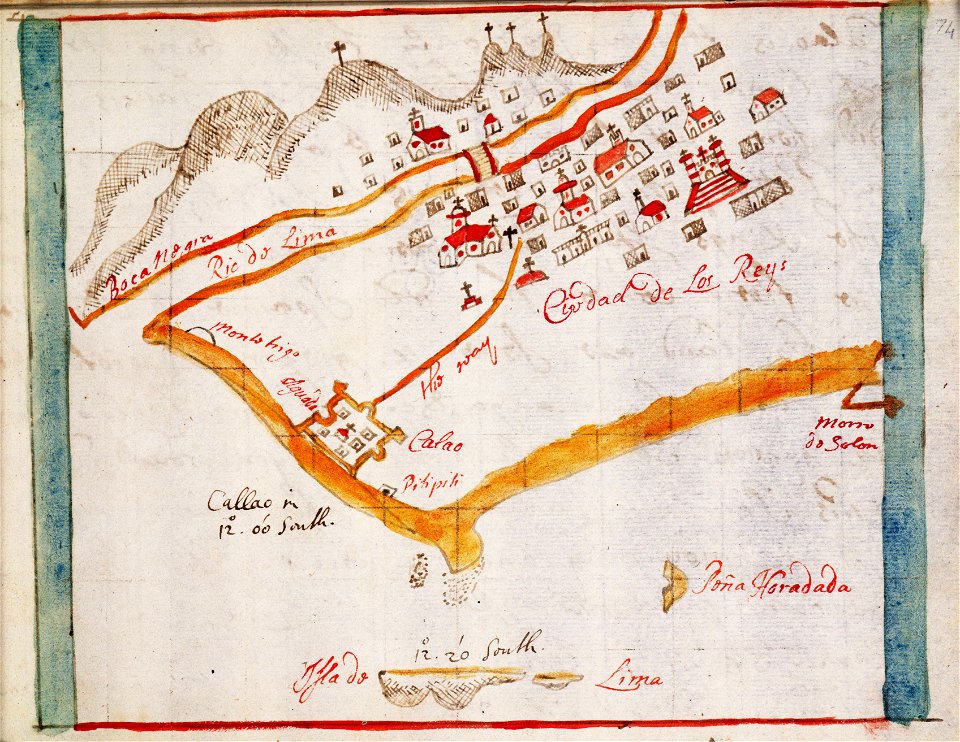 74
Boca Negra
Rio de Lima
Ciudad de Los Reys
hie way
Calao
Pitipiti
Callao in
12°. 00 South.
Morro
de Solon
Peña Horadada
12°. 20 South.
Isla de Lima